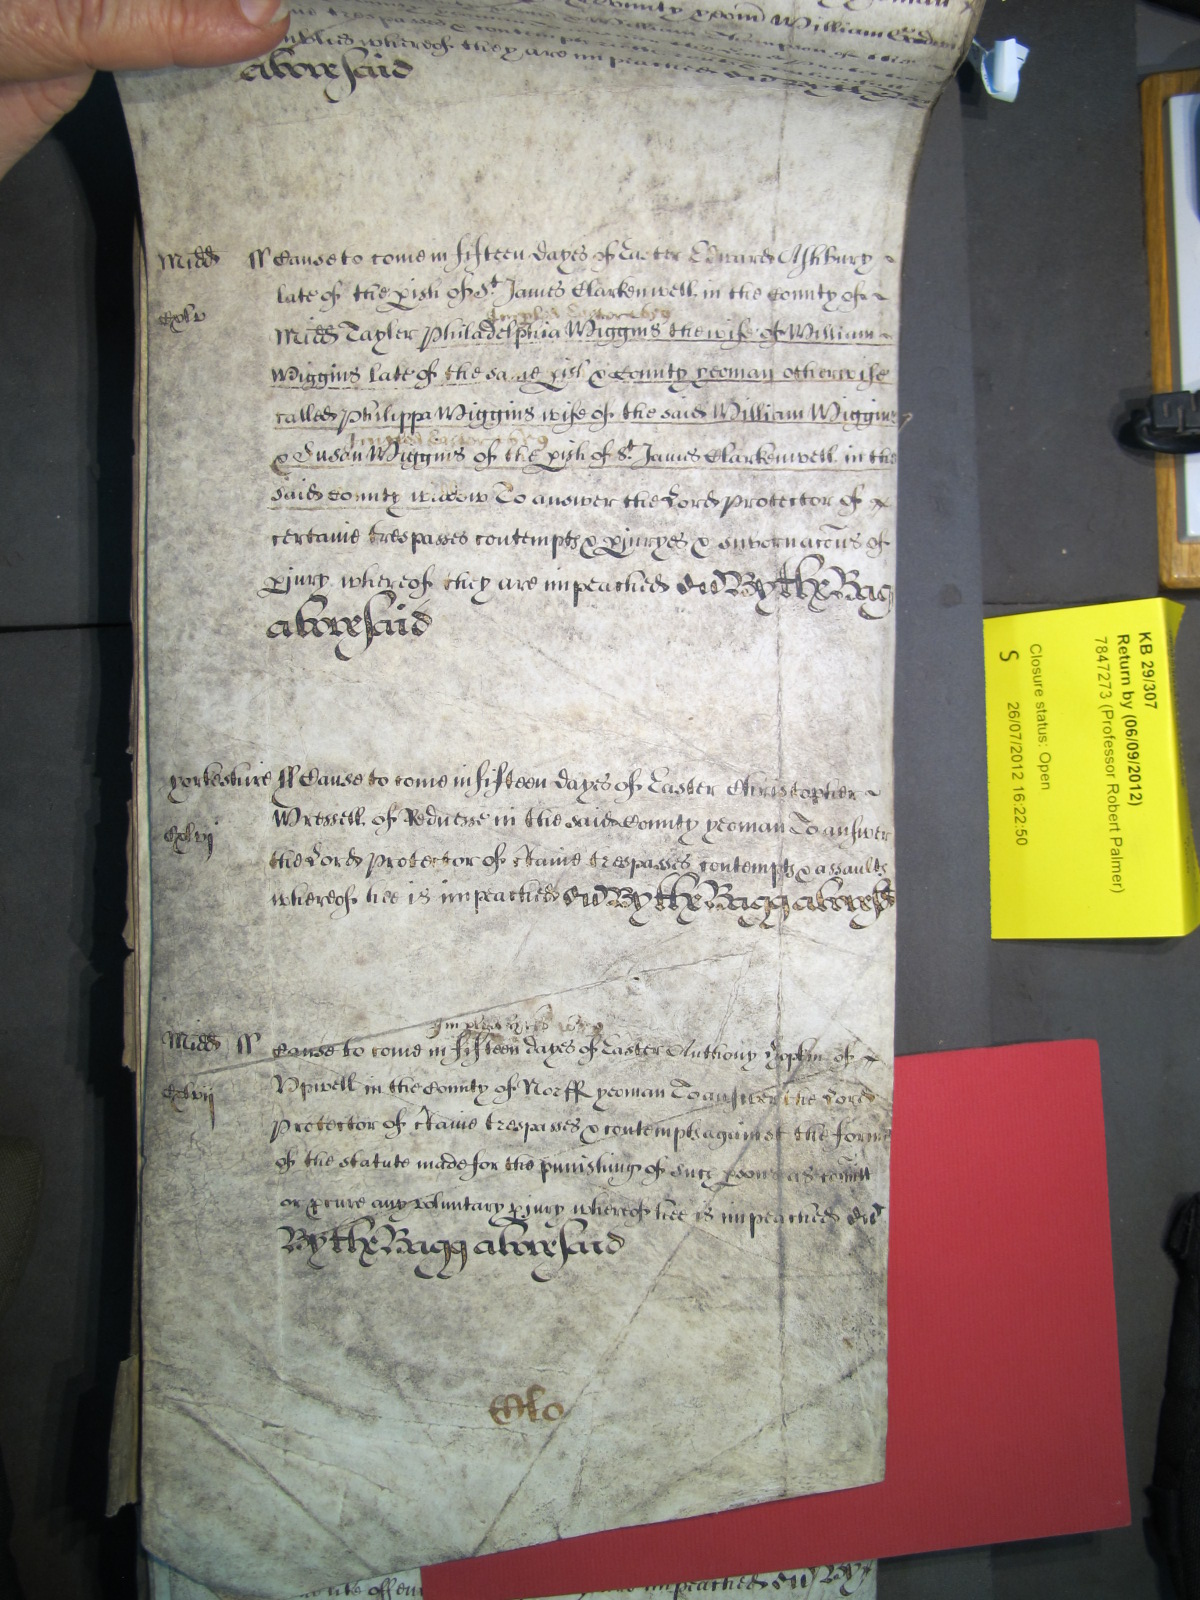 County yeom̄ William
whereof they are impeached
abovesaid
Midd ss Cause to come in fifteen dayes of Easter Edward Ashbury
late of the pish of St James Clarkenwell in the County of
Cxlv
Midd Tayler Philadelphia Wiggins the wife of William
Wiggins late of the same pish & County yeoman otherwise
called Philippa Wiggins wife of the said William Wiggins
& Susan Wiggins of the pish of St James Clarkenwell in the
said County widdow To answer the Lord Protector of
certaine trespasses contempts & pjuryes & subornac̄ons of
pjury whereof they are impeached By the Bag
abovesaid
Yorkeshire ss Cause to come in fifteen dayes of Easter Christopher
Wressell of Rednesse in the said County yeoman To answer
Cxlvj
the Lord Protector of ctaine trespasses contempts & assaults
whereof hee is impeached By the Bagg abovesd
Midd ss
Cause to come in fifteen dayes of Easter Anthony Hopkin of
Upwell in the County of Norff yeoman To answer the Lord
Cxlvii
Protector of ctaine trespasses & contempts against the forme
of the statute made for the punishing of such psons as com̄itt
or pcure any voluntary pjury whereof hee is impeached
By the Bagg abovesaid
impeached By
KB 29/307
Return by (06/09/2012)
7847273 (Professor Robert Palmer)
Closure status: Open
S 26/07/2012 16:22:50